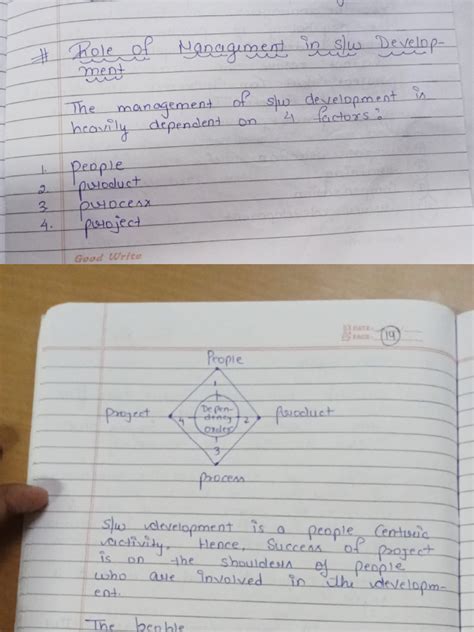 # Role of Management in s/w Develop-
ment
The management of s/w development is
heavily dependent on 4 factors:
1. People
2. product
3 process
4. project
Good Write
DATE
PAGE 19
People
1
project 4 Depen-
dency
order 2 product
3
process
s/w development is a people centric
activity. Hence, success of project
is on the shoulders of people
who are involved in the developm-
ent.
The people